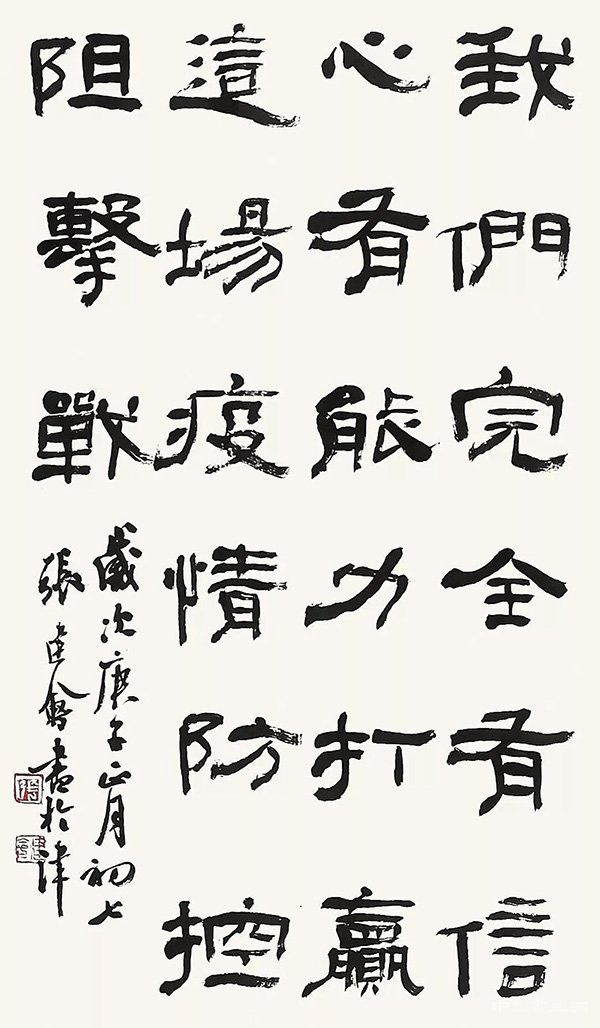 我們完全有信
心有能力打贏
這場疫情防控
阻擊戰
歲次庚子正月初七
張建會書於津